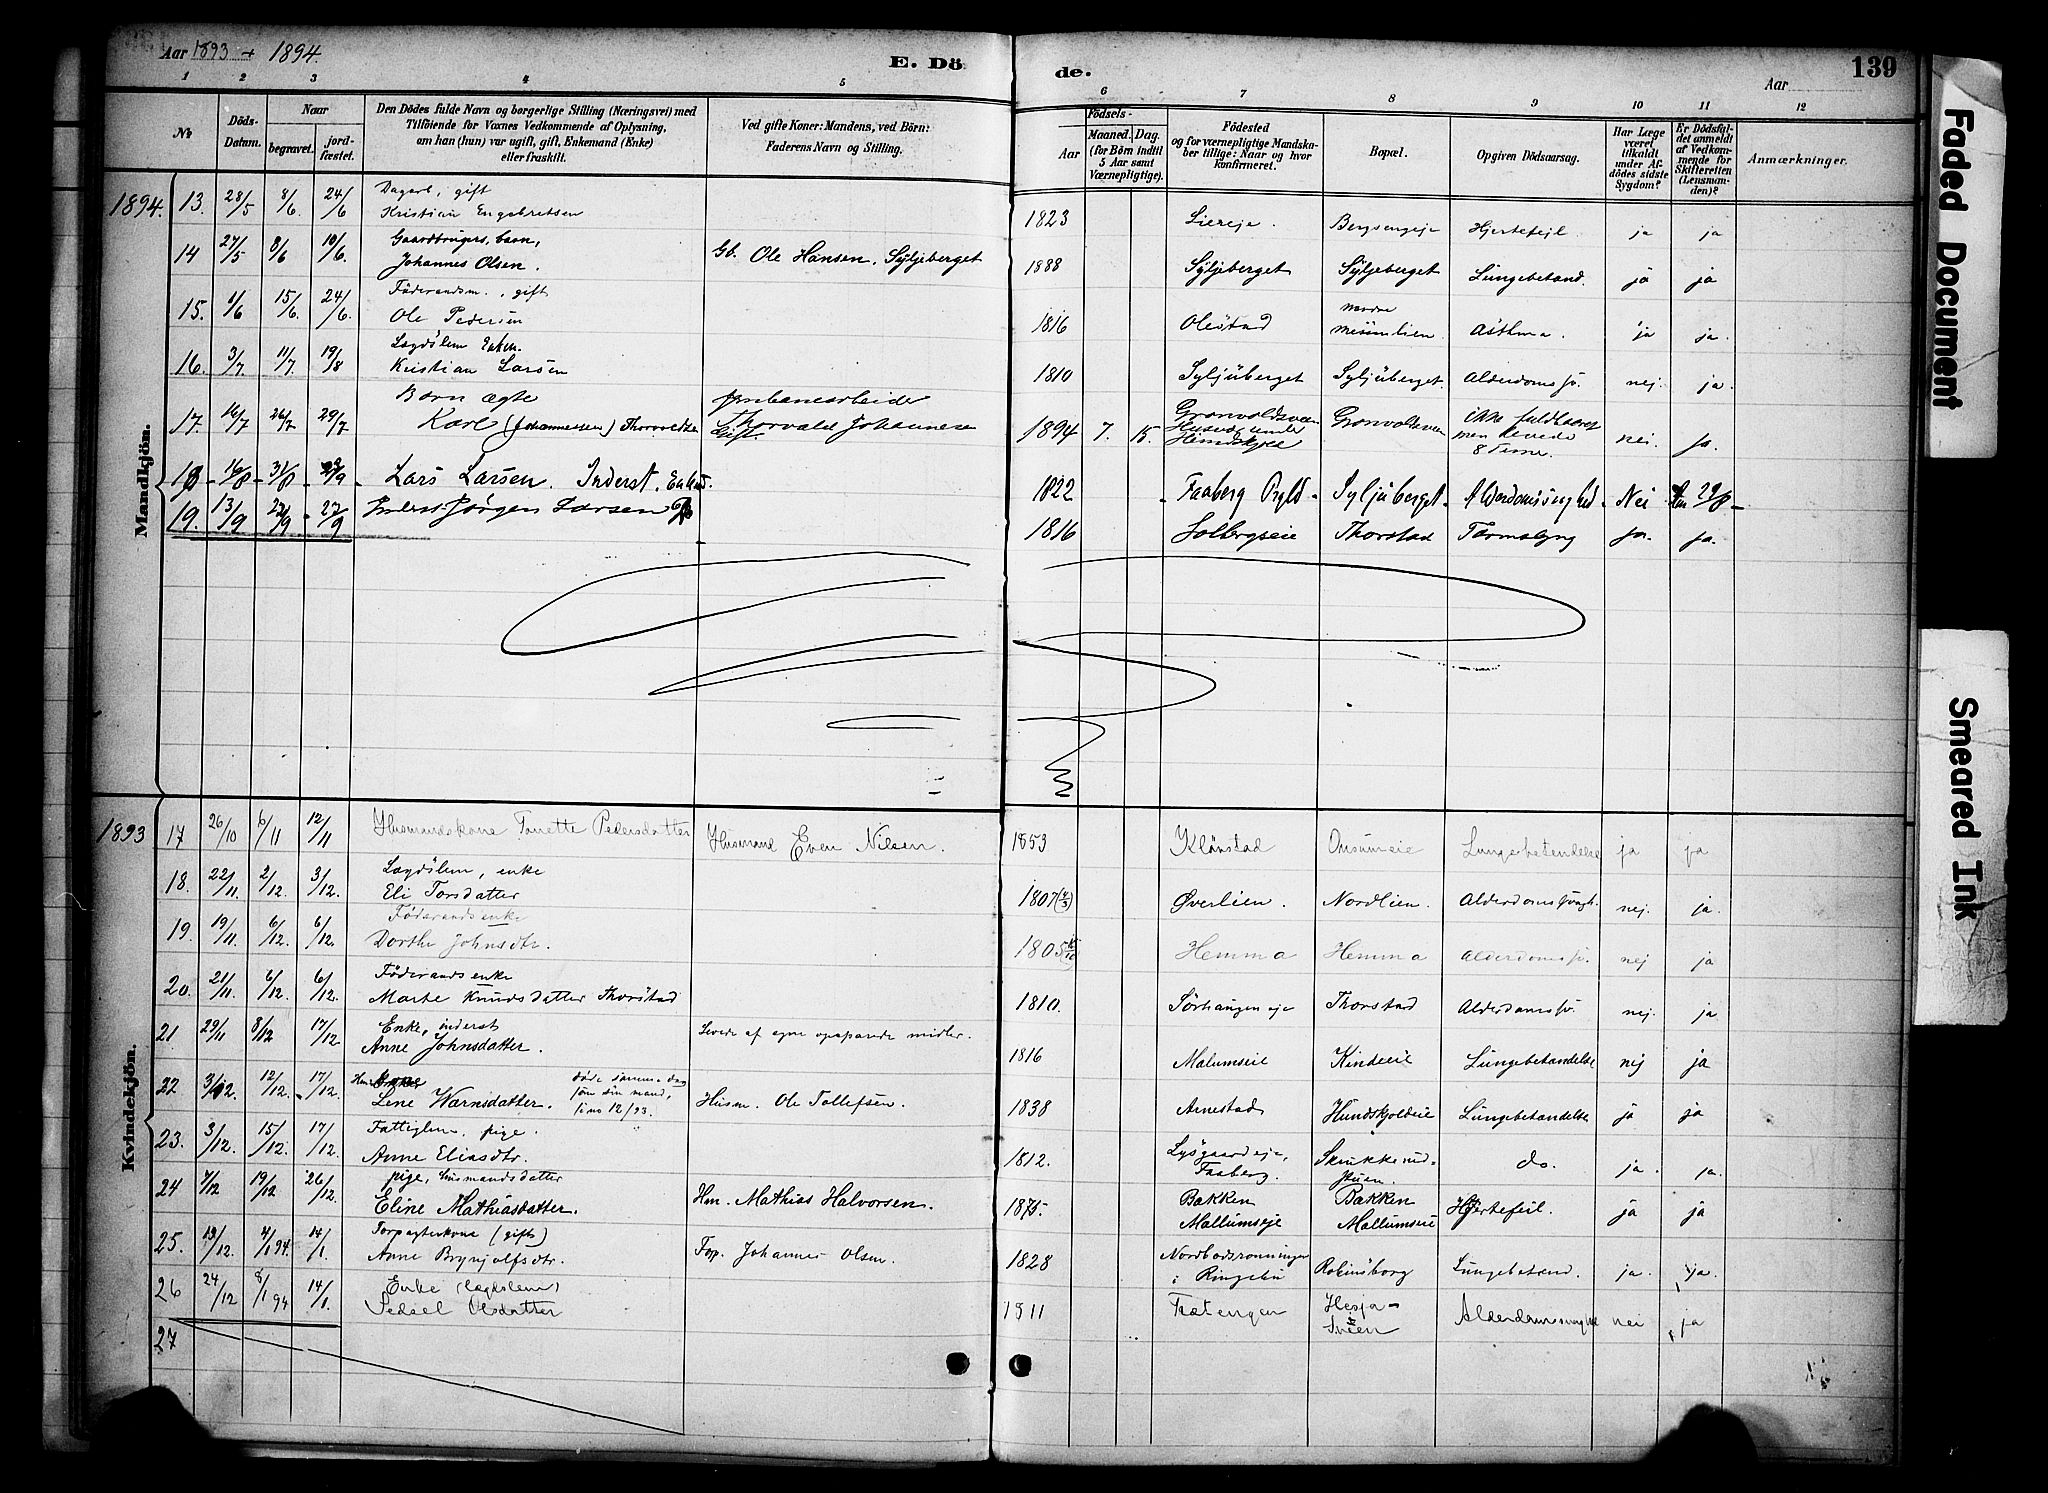 Aar 1893 + 1894.
E. Dö de.
Aar
139
1 2 3 4 5 6 7 8 9 10 11 12
No
Döds-Datum.
Naar
begravet.
jord-fæstet.
Den Dödes fulde Navn og borgerlige Stilling (Næringsvei) med
Tilföiende for Voxnes Vedkommende af Oplysning,
om han (hun) var ugift, gift, Enkemand (Enke)
eller fraskilt.
Ved gifte Koner: Mandens, ved Börn:
Faderens Navn og Stilling.
Födsels-
Aar
Maaned. Dag.
(for Börn indtil
5 Aar samt
Værnepligtige).
Födested
og for værnepligtige Mandska-
ber tillige: Naar og hvor
konfirmeret.
Bopæl.
Opgiven Dödsaarsag.
Har Læge
været
tilkaldt
under Af-
dödes sidste
Sygdom?
Er Dödsfal-
det anmeldt
af Vedkom-
mende for
Skifteretten
(Lensman-
den)?
Anmærkninger.
Mandkjön.
1894. 13. 28/5 8/6. 24/6 Dagarb, gift
Kristian Engebretsen 1823 Liereje. Bergsengeje Hjertefejl. ja ja
14 27/5 8/6 10/6. Gaardbrugers barn,
Johannes Olsen. Gb. Ole Hansen, Syljeberget 1888 Syljeberget Syljeberget Lungebetænd. ja ja
15. 1/6 15/6. 24/6. Föderaadsm., gift
Ole Pedersen 1816 Olestad nordre
Messnalien. Asthma. ja ja.
16. 3/7. 11/7. 19/8 Lægdslem Enkem.
Kristian Larsen 1810 Syljuberget Syljuberget. Alderdomssv. nej. ja.
17. 16/7 26/7 29/7 Barn ægte
Karl (Johannessen) Thorvaldsen Jernbanearbeider
Thorvald Johannesen
Gift. 1894 7. 15. Gronvoldsveen
under Grønvoldsveen ikke fuldbaaret
men levede
8 Timer. nei. ja.
18 - 16/8 - 31/8 - Lars Larsen. Inderst, Enkem. 1822 - Faaberg Pgld - Syljuberget - Alderdomssvaghed - Nei 29/8 -
19. 13/9 22/9 - 27/9 Jørgen Larsen 1816 Solbergseie Thorstad Tarmslyng ja. ja.
Kvindekjön.
1893 17 26/10 6/11 12/11 Husmandskone Tonette Pedersdatter Husmand Even Nilsen. 1853 Klövstad Onsumeie Lungebetændelse ja ja
18. 22/11 2/12. 3/12. Lægdslem, enke
Eli Torsdatter 1807 Øverlien. Nordlien. Alderdomssvagh. nej. ja.
19. 19/11. 6/12. 6/12. Föderaads enke
Dorthe Johnsdtr. 1805 Hemma Hemma Alderdomssv. nej ja
20. 21/11. 6/12. 6/12. Föderaads enke
Marte Knudsdatter Thorstad 1810. Sörhaugen eje Thorstad Alderdomssv. nej. ja
21 29/11 8/12 17/12. Enke, inderst
Anne Johnsdatter. Levede af egne opsparede midler. 1816 Malumseie Kindeeie Lungebetændelse nej ja
22 3/12. 12/12. 17/12. Hm. kone
Lene Warnsdatter. døde samme dag
som sin mand,
12/93. Husm. Ole Tollefsen. 1838 Arnestad Hundskjoldeie Lungebetændelse ja ja
23. 3/12. 15/12. 17/12. Fattiglem, pige.
Anne Eliasdtr. 1812. Lysgaardeje,
Faaberg. Skrukkerud-
stuen. do. ja. ja.
24 7/12 19/12 26/12. pige, husmandsdatter
Eline Mathiasdatter. Hm. Mathias Halvorsen. 1875. Bakken
Mallumseje Bakken
Mallumseie Hjertefeil. ja ja
25. 19/12. 4/1 94. 14/1. Forpagterkone (gift)
Anne Brynjolfsdtr. Forp. Johannes Olsen. 1828 Nordbodsrønningen
i Ringebu Robinsborg Lungebetænd. ja. ja.
26 24/12 8/1 94 14/1. Enke (lægdslem)
Sedsel Olsdatter 1811 Trætengen Hesja-
Sveen Alderdomssvaghed nei ja
27
Faded Document
Smeared Ink